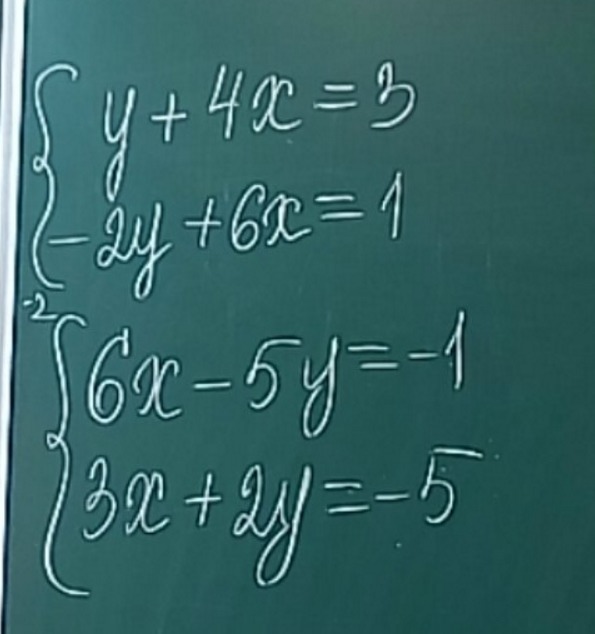 y + 4x = 3
-2y + 6x = 1
-2
6x - 5y = -1
3x + 2y = -5